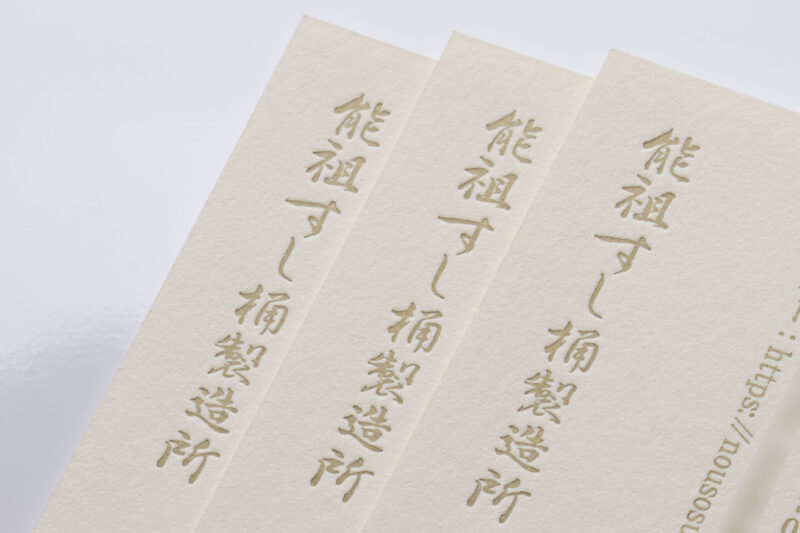 能祖すし桶製造所
能祖すし桶製造所
能祖すし桶製造所
: https://nousosu